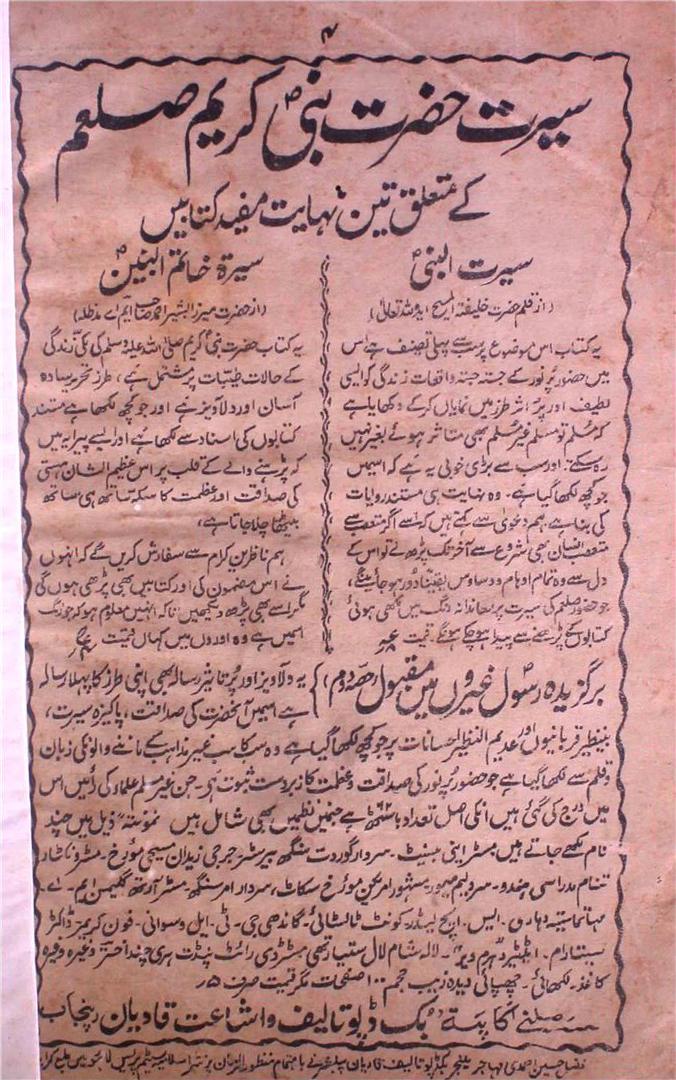 ۴
سیرت حضرت نبی کریم صلعم
کے متعلق تین نہایت مفید کتابیں
سیرت النبیؐ
(از قلم حضرت خلیفۃ المسیح ایدہ اللہ تعالیٰ)
یہ کتاب اس موضوع پر سب سے پہلی تصنیف ہے اس
میں حضور پُر نور کے جستہ جستہ واقعات زندگی کو ایسی
لطیف اور پُر اثر طرز میں نمایاں کر کے دکھایا ہے
کہ مُسلم تو مسلم غیر مُسلم بھی متاثر ہوئے بغیر نہیں
رہ سکتے۔ اور سب سے بڑی خوبی یہ ہے کہ اسمیں
جو کچھ لکھا گیا ہے۔ وہ نہایت ہی مستند روایات
کی بناء پر ہے ہم دعویٰ سے کہتے ہیں کہ اسے اگر متعصب سے
متعصب انسان بھی شروع سے آخر تک پڑھ لے تو اس کے
دل سے وہ تمام اوہام و وساوس یقیناً دُور ہو جائینگے،
جو حضور صلعم کی سیرت پر معاندانہ رنگ میں لکھی ہوئی
کتابوں کے پڑھنے سے پیدا ہو چکے ہونگے۔ قیمت
سیرۃ خاتم النبین
(از حضرت میرزا بشیر احمد صاحب ایم اے مدظلہ)
یہ کتاب حضرت نبی کریم صلی اللہ علیہ وسلم کی مکی زندگی
کے حالات طیبات پر مشتمل ہے، طرز تحریر سادہ
آسان اور دلآویز ہے اور جو کچھ لکھا ہے مستند
کتابوں کی اسناد سے لکھا ہے اور ایسے پیرایہ میں
کہ پڑھنے والے کے قلب پر اس عظیم الشان ہستی
کی صداقت اور عظمت کا سکہ ساتھ ہی ساتھ
بیٹھا چلا جاتا ہے،
ہم ناظرین کرام سے سفارش کریں گے کہ انہوں
نے اس مضمون کی اور کتابیں بھی پڑھی ہوں گی
مگر اسے بھی پڑھ دیکھیں تاکہ انہیں معلوم ہو کہ جو رنگ
اسمیں ہے وہ اوروں میں کہاں قیمت
برگزیدہ رسول غیروں میں مقبول حصہ دوم،
یہ دلآویز اور پُر تاثیر رسالہ بھی اپنی طرز کا پہلا رسالہ
ہے اسمیں آنحضرت کی صداقت، پاکیزہ سیرت،
بینظیر قربانیوں اور عدیم النظیر احسانات پر جو کچھ لکھا گیا ہے وہ سب کا سب غیر مذاہب کے ماننے والونکی زبان
و قلم سے لکھا گیا ہے جو حضور پُر نور کی صداقت و عظمت کا زبردست ثبوت ہے۔ جن غیر مسلم علماء کی رائیں اس
میں درج کی گئی ہیں انکی اصل تعداد باسٹھ ۶۲ ہے جنمیں نظمیں بھی شامل ہیں نمونتہً ذیل میں چند
نام لکھے جاتے ہیں مسٹر اینی بسینٹ۔ سردار گوردت سنگھ بیرسٹر جرجی زیدان مسیحی مؤرخ۔ مسٹر
مدراسی ہندو۔ سر ولیم میور۔ مشہور امریکن مؤرخ سکاٹ، سردار امر سنگھ۔ مسٹر آرتھر گلیمن ایم۔ اے۔
ایس۔ ایچ لیڈر۔ کونٹ ٹالسٹائی۔ گاندھی جی۔ ٹی۔ ایل وسوانی۔ فون کریمر ڈاکٹر
سیتا رام۔ ایڈیٹر دھرم ویر۔ لالہ شام لال ستیارتھی مسٹر ڈی رائٹ پنڈت ہری چند اختر وغیرہ وغیرہ
کاغذ۔ لکھائی۔ چھپائی دیدہ زیب حجم ۱۰۰ صفحات مگر قیمت صرف ۵ر
ملنے کا پتہ بک ڈپو تالیف و اشاعت قادیان پنجاب
فضل حسین احمدی مہاجر مینجر بکڈپو تالیف قادیان پبلشر نے باہتمام